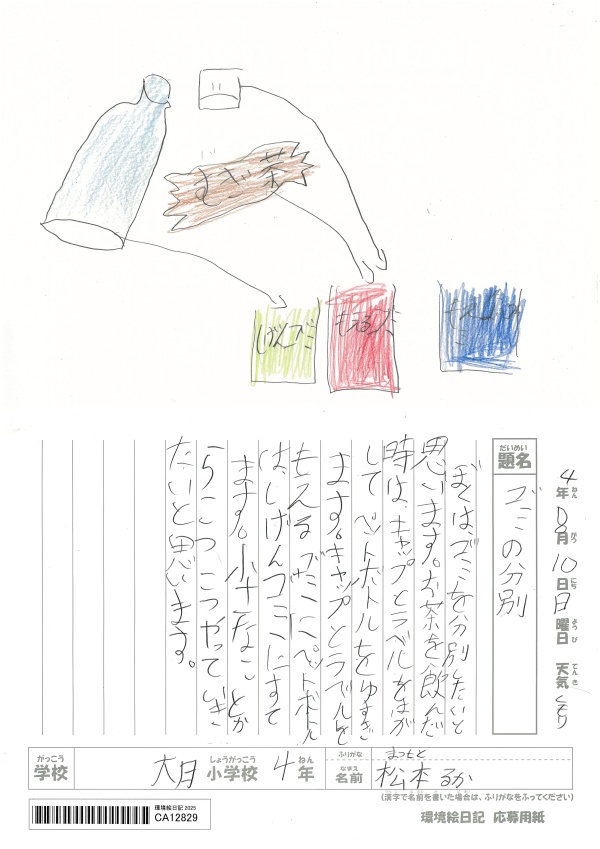 むぎ茶
しげんゴミ
もえるゴミ
4年8月10日日曜日 天気くもり
ねん がつ にち ようび てんき
だいめい
題名
ゴミの分別
ぼくは、ゴミを分別したいと
思います。お茶を飲んだ
時は、キャップとラベルをはが
して ペットボトルをゆすぎ
ます。キャップとラベルを
もえるゴミにペットボトル
は、しげんゴミにすて
ます。小さなことか
らこつこつやっていき
たいと思います。
がっこう
学校
しょうがっこう
大月小学校
ねん
4年
ふりがな
まつもと
なまえ
名前
松本 るか
(漢字で名前を書いた場合は、ふりがなをふってください)
環境絵日記 2025
CA12829
環境絵日記 応募用紙